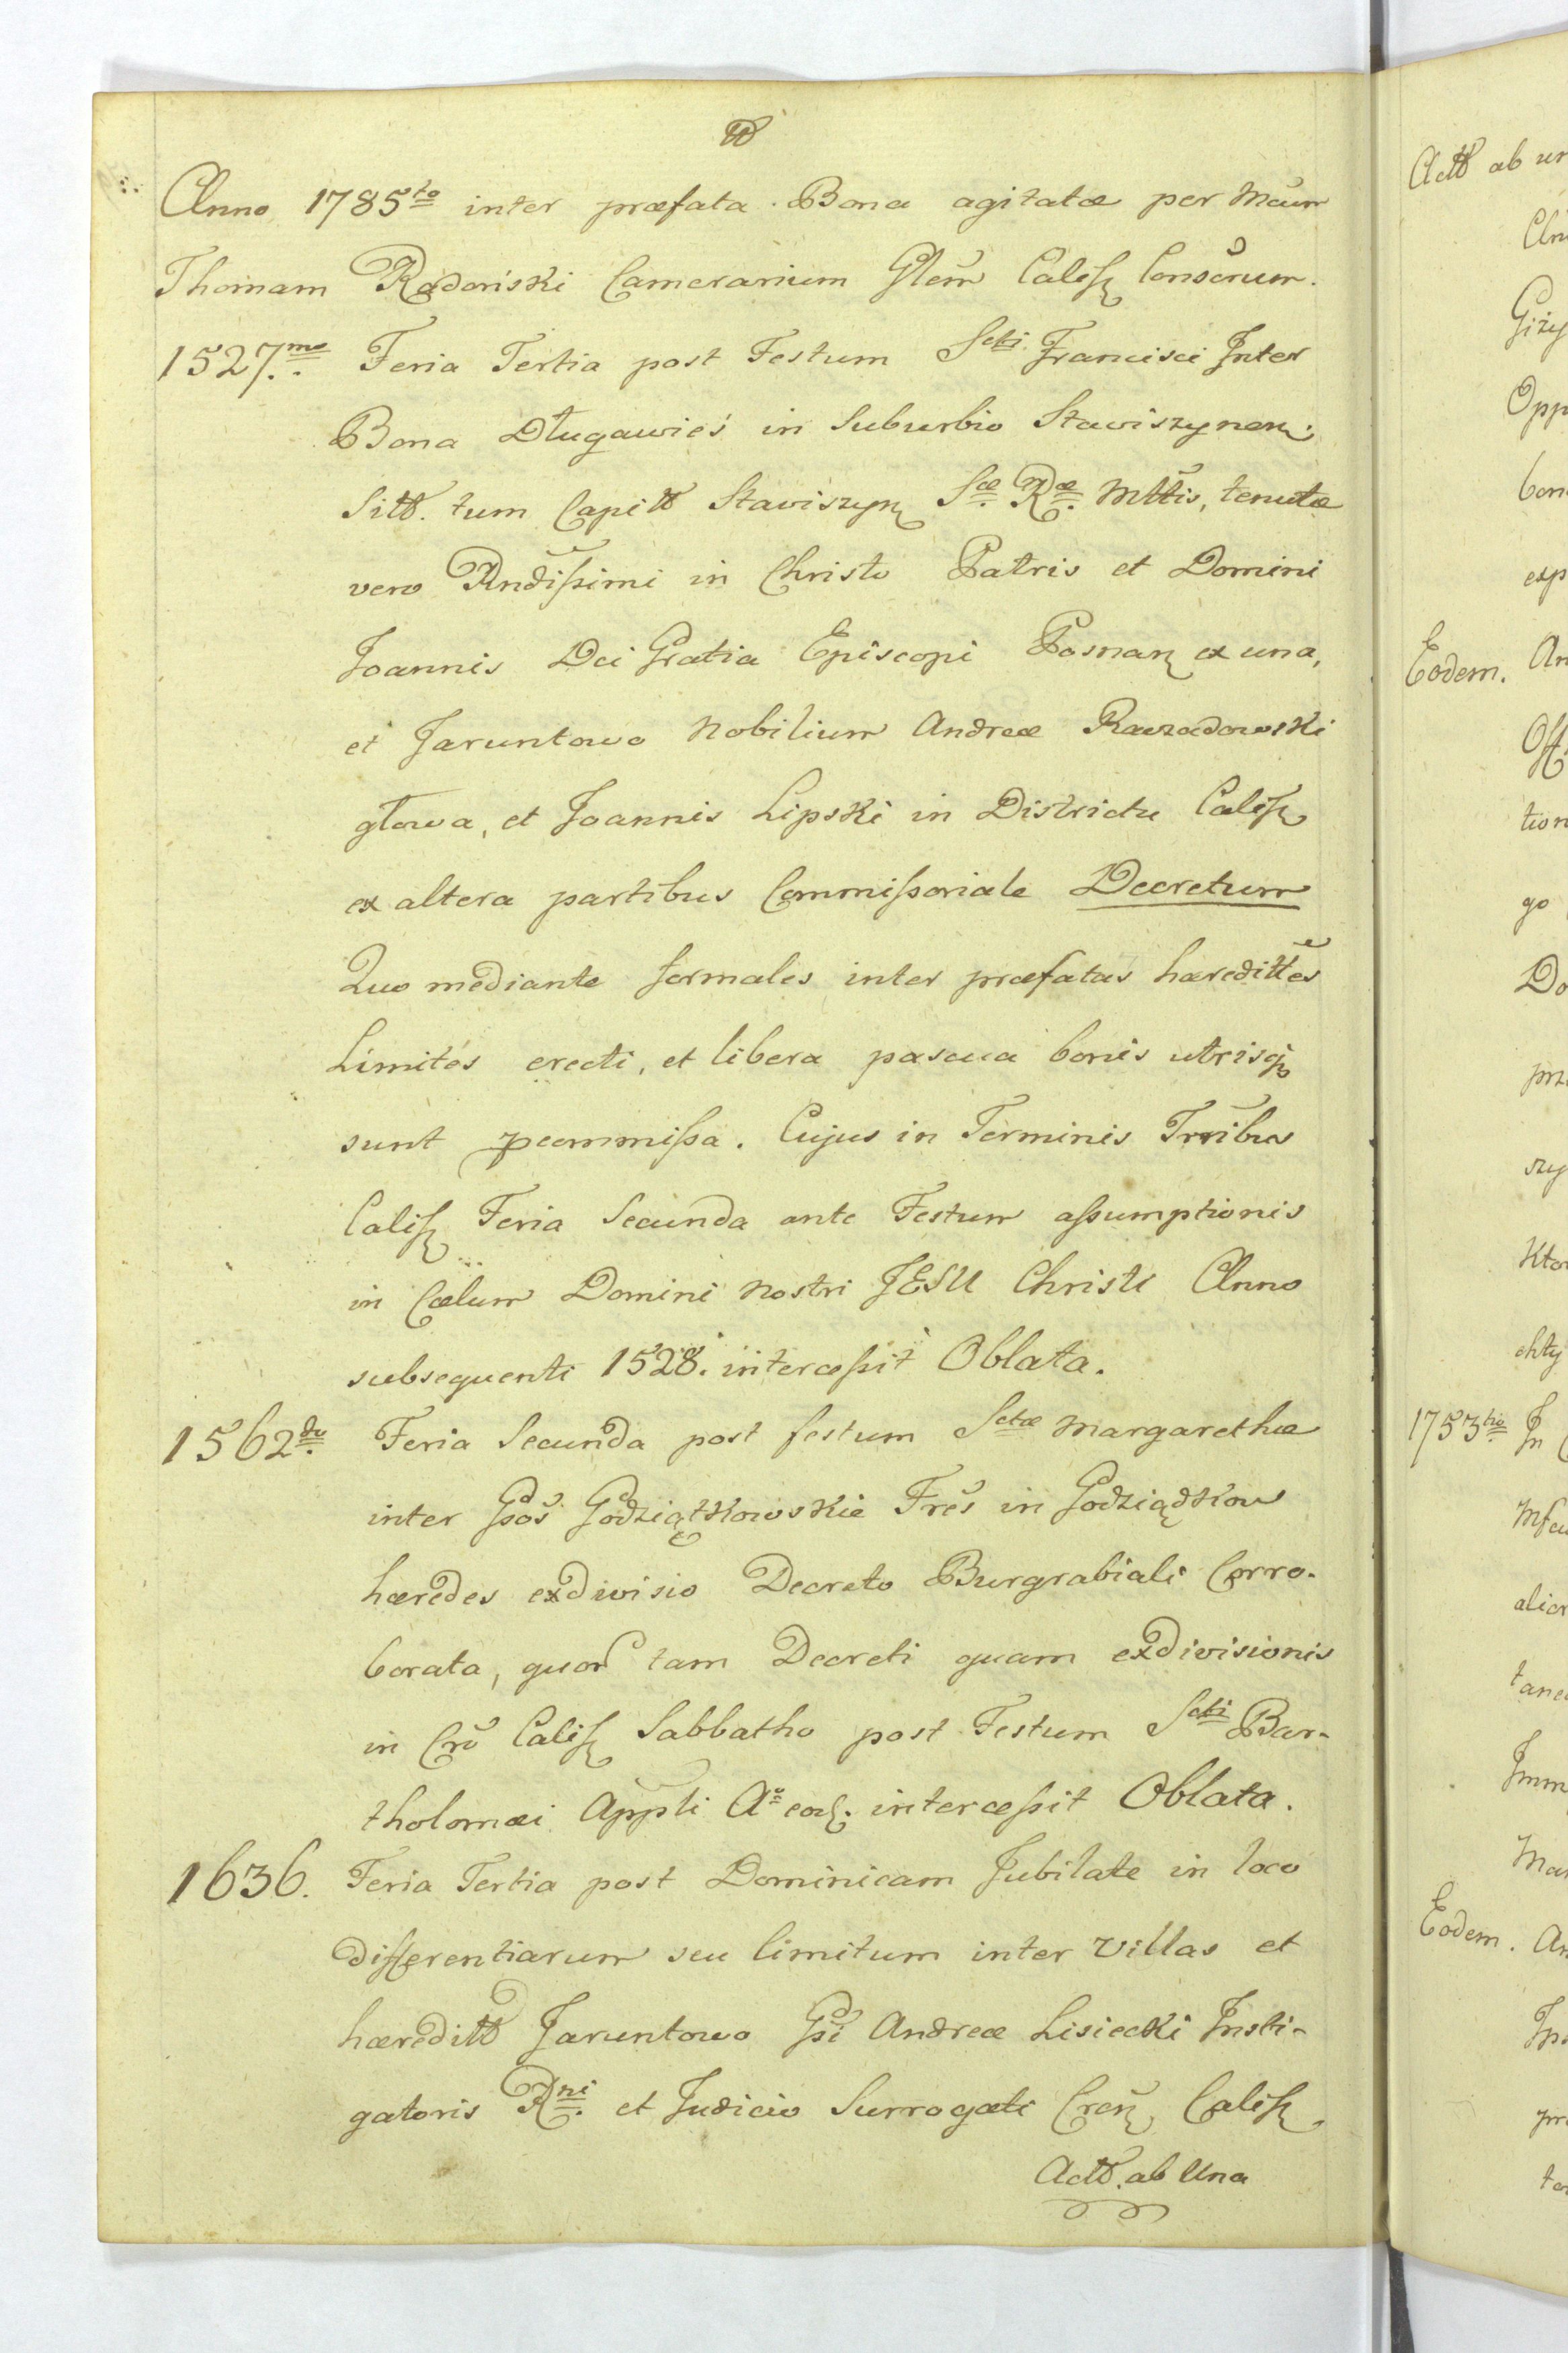 Anno 1785to inter præfata Bona agitatæ per Mcum
Thomam Radoński Camerarium Glem Calisz Conserum.
1527mo Feria Tertia post Festum Scti Francisci Inter
Bona Długawieś in Suburbio Stawiszynen:
Sitt. tum Capitt Stawiszyn Sæ Ræ Mttis, tenutæ
vero Rndissimi in Christo Patris et Domini
Joannis Dei Gratia Episcopi Posnan ex una,
et Jaruntowo Nobilium Andreæ
głowa, et Joannis Lipski in Districtu Calisz
ex altera partibus Commissoriale Decretum
Quo mediante formales inter præfatas hæredittes
Limites erecti, et libera pascua bonis utrisq
sunt pcommissa. Cujus in Terminis Trribus
Calisz Feria Secunda ante Festum assumptionis
in Cælum Domini Nostri JESU Christi Anno
subsequenti 1528. intercessit Oblata.
1562do Feria Secunda post festum Sctæ Margarethæ
inter Gsos Godziątkowskie Fres in Godziądkow
hæredes exdivisio Decreto Burgrabiali Corro-
borata, quor tam Decreti quam exdivisionis
in Cro Calisz Sabbatho post Festum Scti Bar-
tholomæi Appli Ao eod. intercessit Oblata.
1636. Feria Tertia post Dominicam Jubilate in loco
differentiarum seu limitum inter Villas et
hæreditt Jaruntowo Gsi Andreæ Lisiecki Insti-
gatoris Rni et Judicio Surrogati Cren Calisz
Actt. ab Una
Actt ab un
Eodem. An
1753tio In
Eodem. An